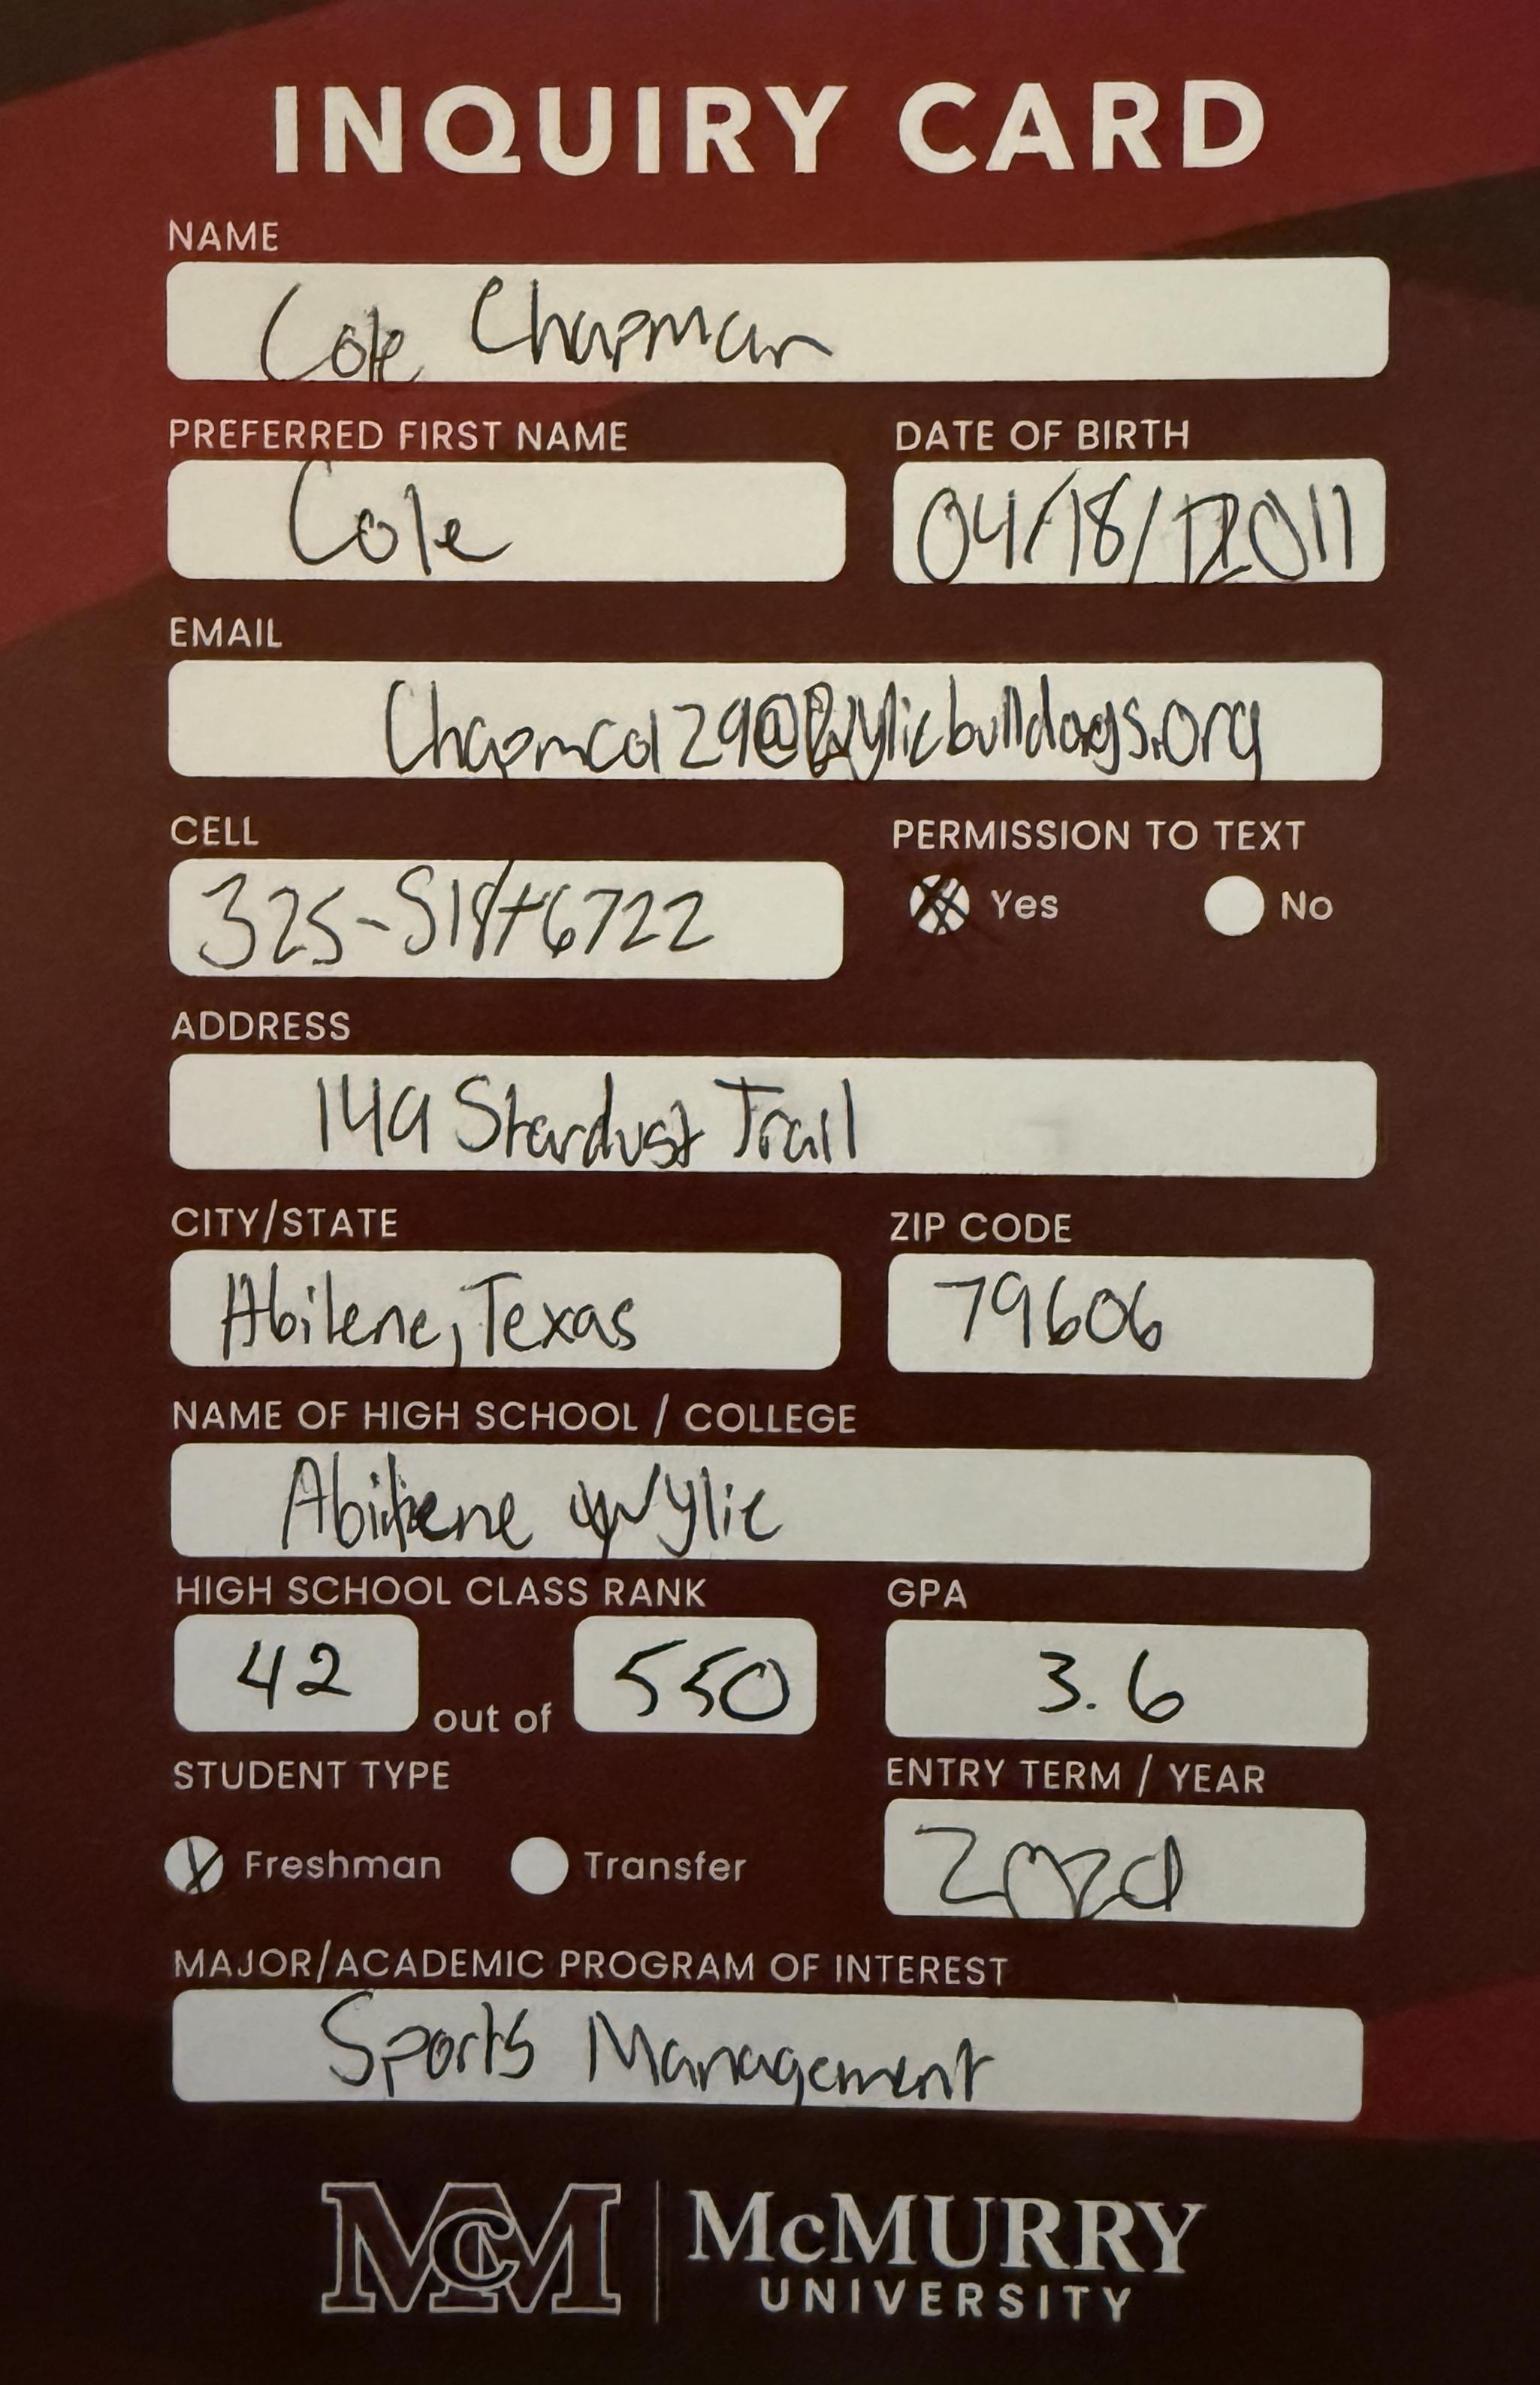 INQUIRY CARD
NAME
Cole Chapman
PREFERRED FIRST NAME
Cole
DATE OF BIRTH
04/18/2011
EMAIL
Chapmcol29@wyliebulldogs.org
CELL
325-518-6722
PERMISSION TO TEXT
Yes
No
ADDRESS
149 Stardust Trail
CITY/STATE
Abilene, Texas
ZIP CODE
79606
NAME OF HIGH SCHOOL / COLLEGE
Abilene Wylie
HIGH SCHOOL CLASS RANK
42 out of 550
GPA
3.6
STUDENT TYPE
Freshman
Transfer
ENTRY TERM / YEAR
MAJOR/ACADEMIC PROGRAM OF INTEREST
Sports Management
McM
McMURRY
UNIVERSITY